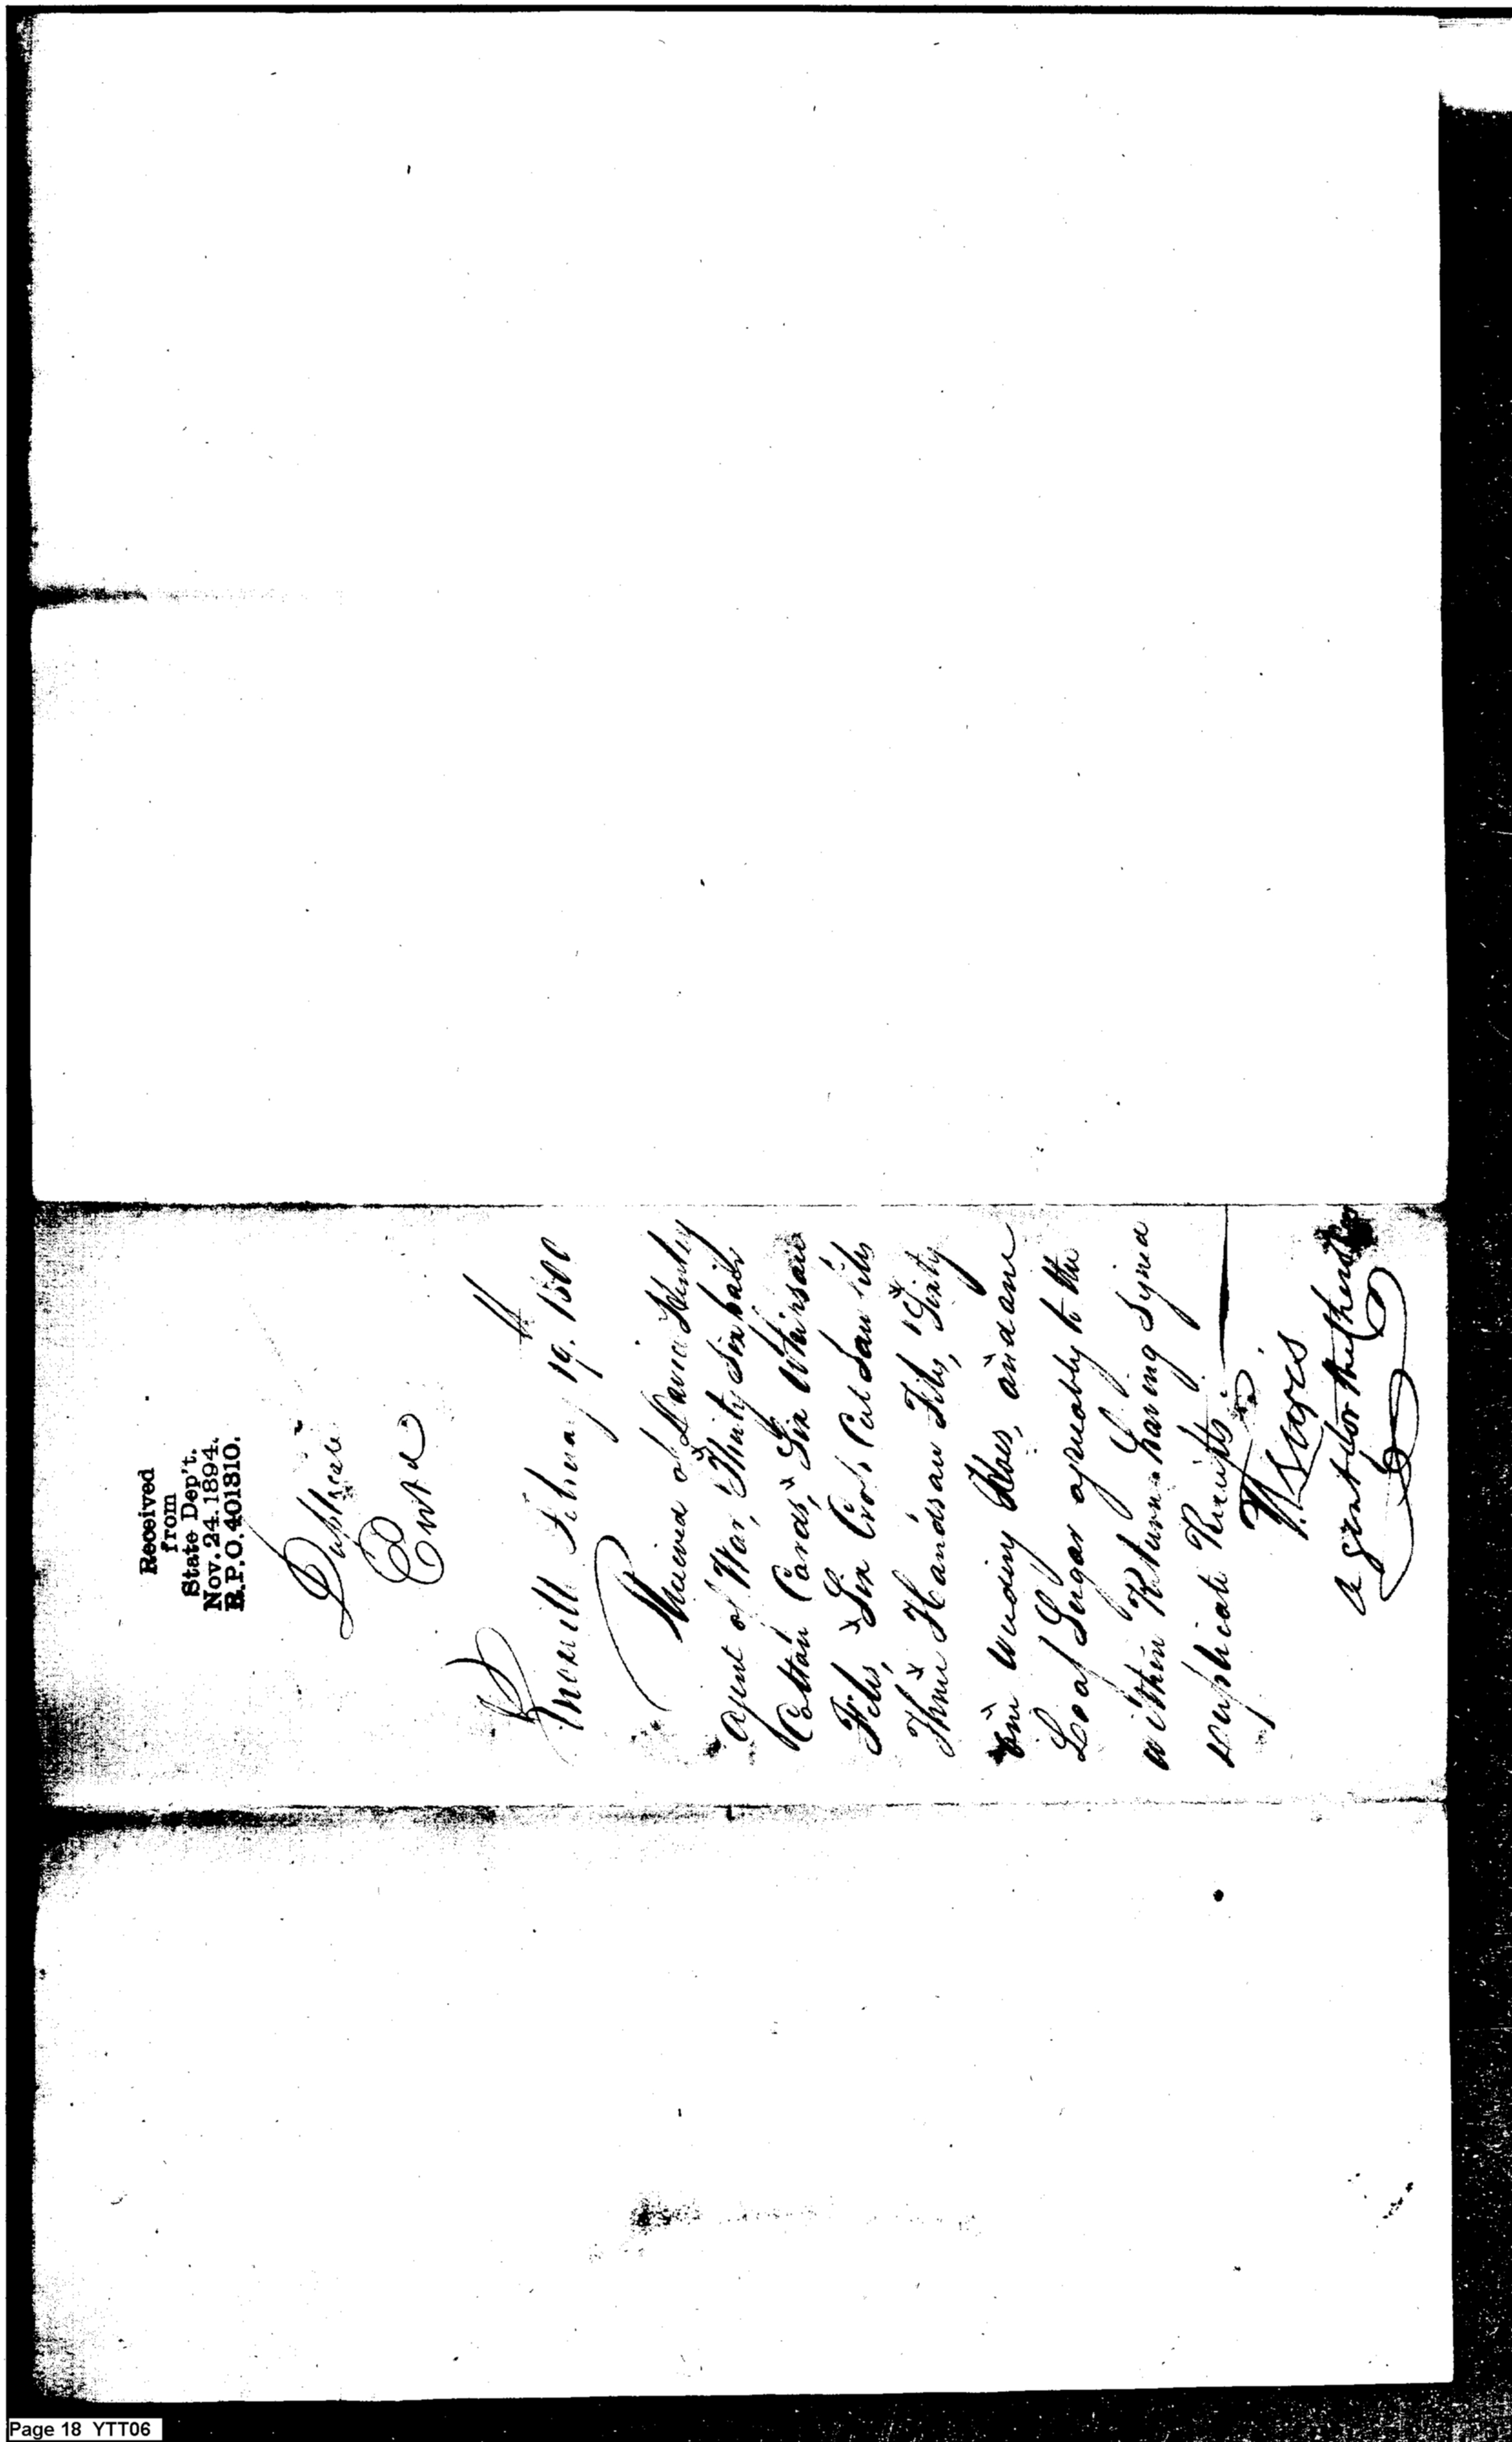 Received
from
State Dep't.
Nov. 24. 1894.
B.P.O. 401810.
Duplicate
February 19th 1800
Received of David Henley
Agent of War, Thirty Six pair
Cotton Cards, Six Whipsaw
Files, Six Cross Cut Saw files
Three Handsaw Files, Sixty
one weeding Hoes, and one
Loaf Sugar agreeably to the
within Return having Signed
Receipts.
Agent for the Cherokees
Page 18 YTT06